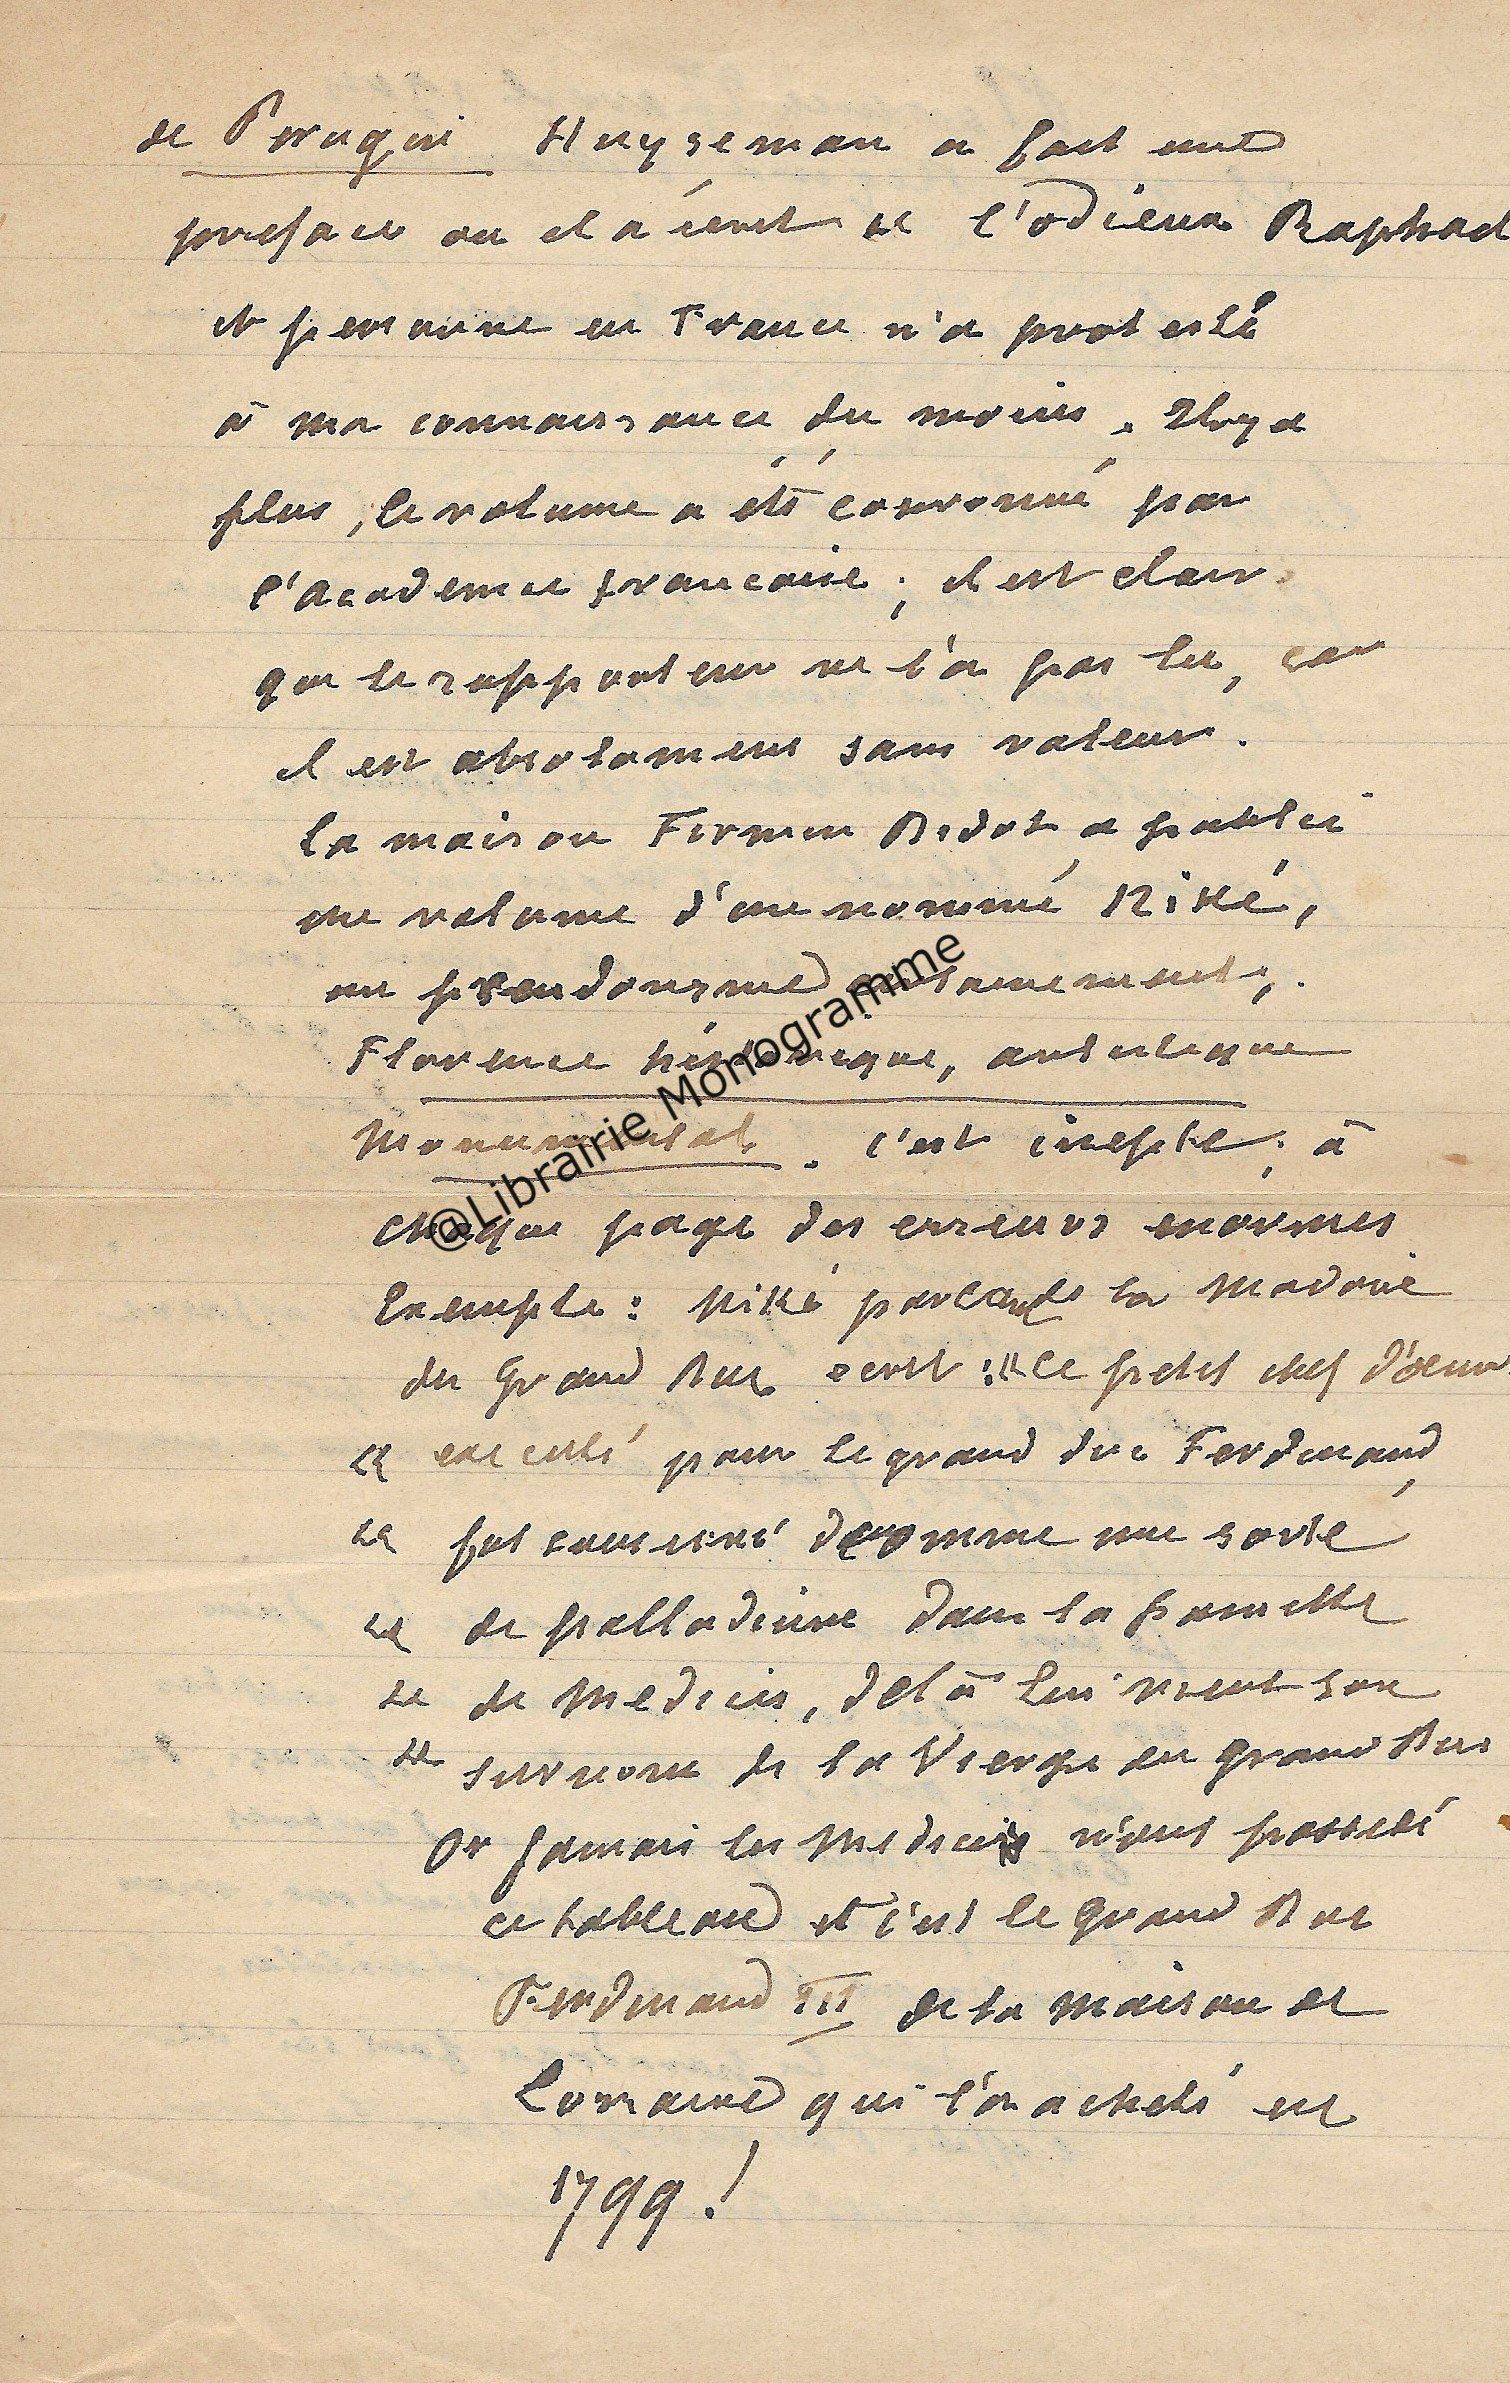 de Perugin Huyseman a fait une
preface ou il a écrit " l'odieux Raphael
et personne en France n'a protesté
à ma connaissance du moins. Il y a
plus, le volume a été couronné par
l'Academie francaise; il est clair
que le rapporteur ne l'a pas lu, car
il est absolument sans valeur.
La maison Firmin Didot a publié
un volume d'un nommé Niké,
un pseudonyme certainement,
Florence historique, artistique
Monumental. C'est inepte; à
chaque page des erreurs enormes
Exemple: Niké parlant de la Madone
du Grand Duc ecrit: "Ce petit chef d'oeuv
" executé pour le grand duc Ferdinand
" fut conservé comme une sorte
" de palladium dans la famille
" de Medicis, de là lui vient son
" surnom de la Vierge du grand Duc
Or jamais les Medicis n'ont possedé
ce tableau et c'est le grand Duc
Ferdinand III de la maison de
Lorraine qui l'a acheté en
1799!
@Librairie Monogramme